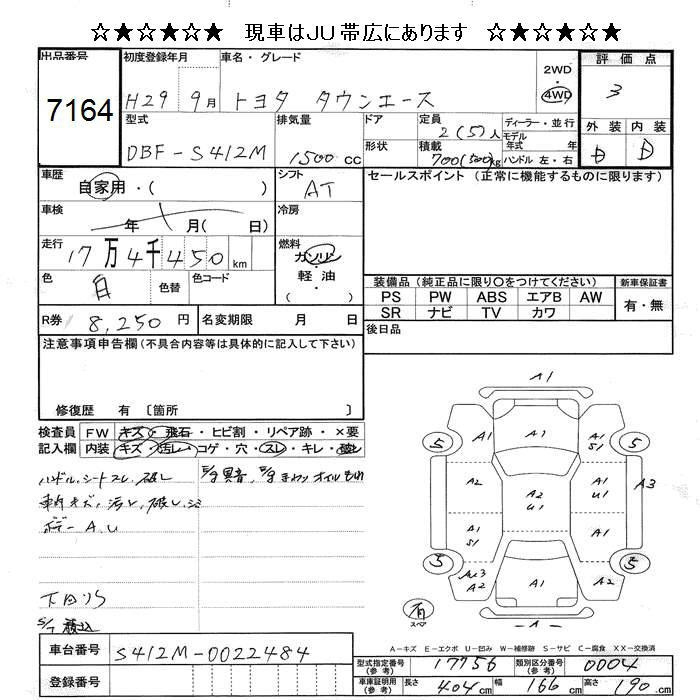 ☆★☆★☆★ 現車はJU帯広にあります ☆★☆★☆★
出品番号 初度登録年月 車名・グレード 2WD 評価点
7164 H29 9月 トヨタ タウンエース 4WD 3
型式 排気量 ドア 定員 ディーラー・並行 外装 内装
DBF-S412M 1500cc 2(5)人 モデル年式 年 D D
形状 積載 700(500)kg ハンドル 左・右
車歴 自家用・( ) シフト AT セールスポイント (正常に機能するものに限ります)
車検 年 月( 日) 冷房
走行 17万4千450km 燃料 ガソリン
色 白 色替 色コード 軽・油
( )
装備品 (純正品に限り〇をつけてください) 新車保証書
PS PW ABS エアB AW 有・無
SR ナビ TV カワ
R券 8,250円 名変期限 月 日 後日品
注意事項申告欄 (不具合内容等は具体的に記入して下さい)
修復歴 有 〔箇所 〕
検査員 FW キズ・飛石・ヒビ割・リペア跡・×要
記入欄 内装 キズ・汚レ・コゲ・穴・スレ・キレ・破レ
ハンドル、シートスレ、破レ
キズ、汚レ、破レ、シミ
ボデーA.U
下回りサビ
A1
5 A1 A1 A1 S1 5
A2 A2 U1 A1 U1 A3
A1 S1 A1
5 A2 A1 A2 5
有 スペア A
A-キズ E-エクボ U-凹み W-補修跡 S-サビ C-腐食 XX-交換済
車台番号 S412M-0022484 型式指定番号(参考) 17756 類別区分番号(参考) 0004
登録番号 車庫証明用(参考) 長さ 404cm 幅 166cm 高さ 190cm